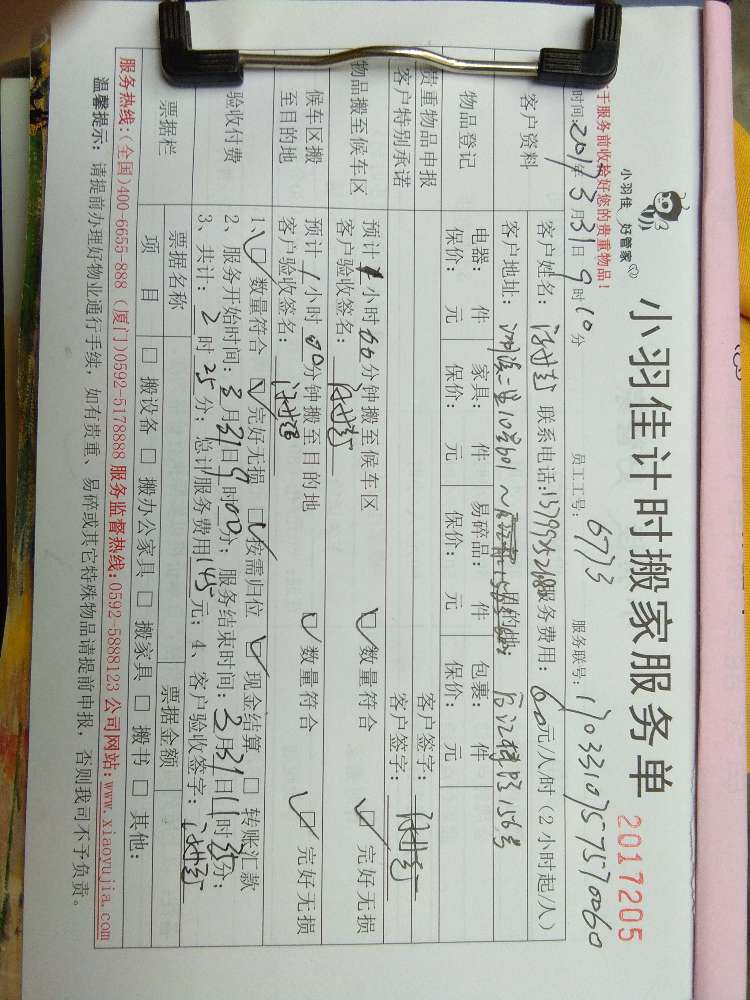 小羽佳 好管家
小羽佳计时搬家服务单
2017205
于服务前收拾好您的贵重物品!
时间:2017年3月31日9时10分 员工工号: 6773 服务联号: 1703310757570060
客户资料
客户姓名: 联系电话: 服务费用: 60元/人/时(2小时起/人)
客户地址: 目的地:
物品登记
电器: 件 家具: 件 易碎品: 件 包裹: 件
保价: 元 保价: 元 保价: 元 保价: 元
贵重物品申报 客户签字:
客户特别承诺 客户签字:
物品搬至候车区
预计1小时00分钟搬至候车区 数量符合 完好无损
客户验收签名:
候车区搬至目的地
预计1小时00分钟搬至目的地 数量符合 完好无损
客户验收签名:
验收付费
1、数量符合 完好无损 按需归位 现金结算 转账汇款
2、服务开始时间:3月31日9时00分;服务结束时间:3月31日11时25分;
3、共计:2时25分;总计/服务费用145元;4、客户验收签字:
票据栏
票据名称 票据金额
项目 搬设备 搬办公家具 搬家具 搬书 其他:
服务热线:(全国)400-6655-888 (厦门)0592-5178888 服务监督热线:0592-5888123 公司网站:www.xiaoyujia.com
温馨提示: 请提前办理好物业通行手续,如有贵重、易碎或其它特殊物品请提前申报,否则我司不予负责。